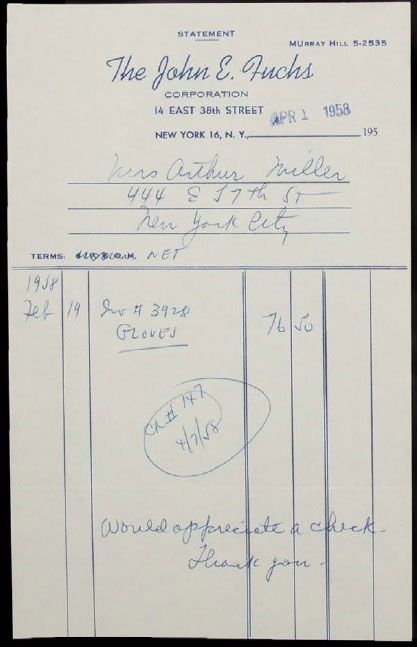 STATEMENT
MURRAY HILL 5-2535
The John E. Fuchs
CORPORATION
14 EAST 38th STREET
APR 1 1958
NEW YORK 16, N. Y., 195
Mrs Arthur Miller
444 E 57th St
New York City
TERMS: NET
1958
Feb 19 Inv # 3928 76 50
GLOVES
Ck # 147
4/7/58
Would appreciate a check.
Thank you.